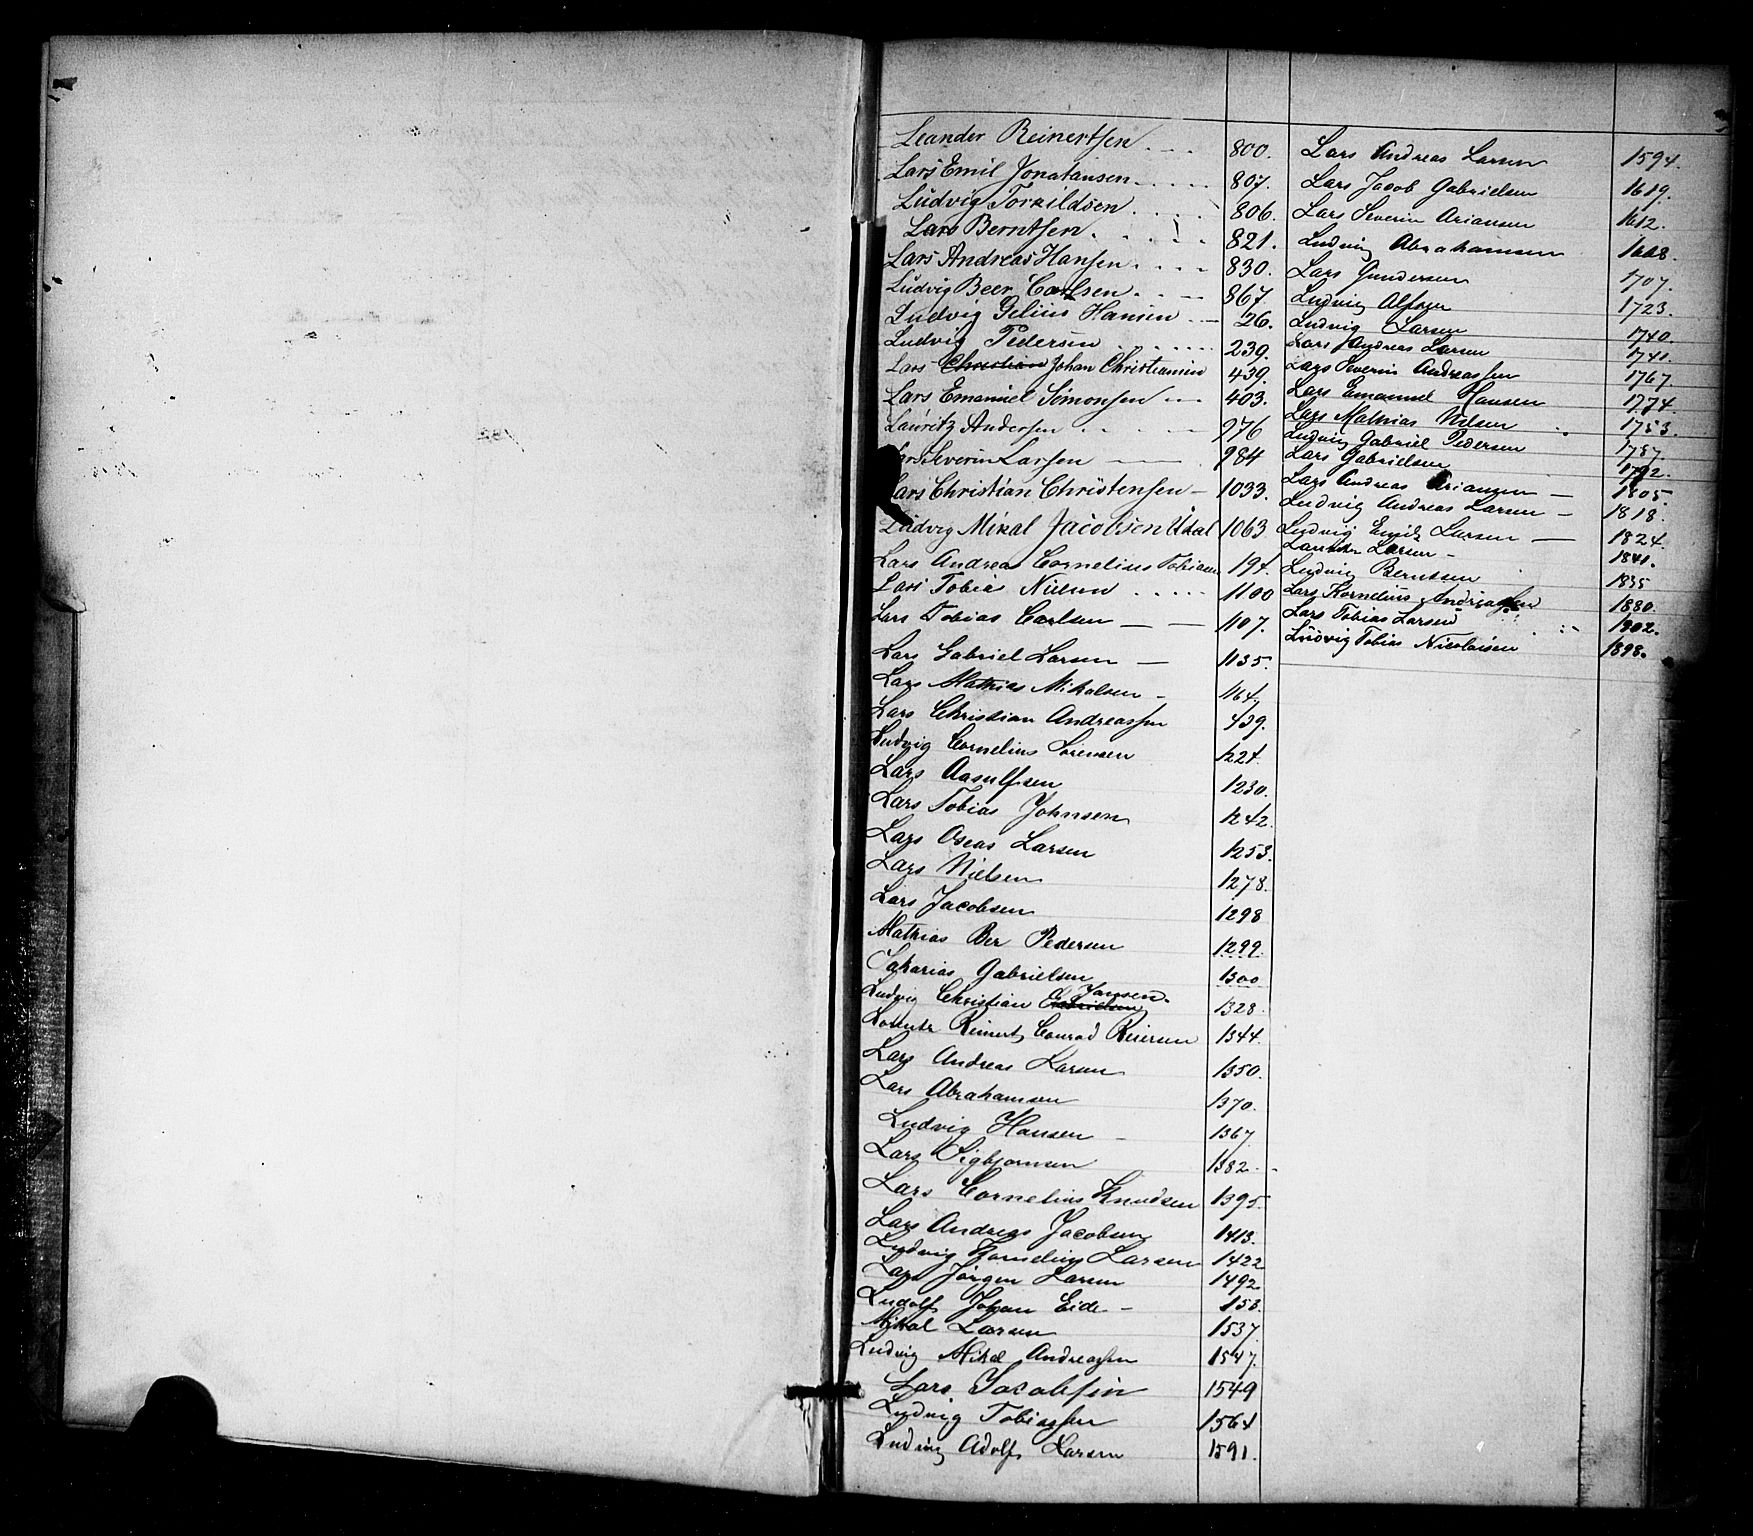 Leander Reinertsen 800.
Lars Emil Jonatansen 807.
Ludvig Torkildsen 806.
Lars Berntsen 821.
Lars Andreas Hansen 830.
Ludvig Beer Carlsen 867.
Ludvig Gelius Hansen 26.
Ludvig Pedersen 239.
Lars Christian Johan Christiansen 439.
Lars Emanuel Simonsen 403.
Lauritz Andersen 976
Lars Severin Larsen 984
Lars Christian Christensen 1033.
Ludvig Mikal Jacobsen Udal 1063
Lars Andreas Cornelius Tobiasen 194.
Lars Tobias Nielsen 1100
Lars Tobias Carlsen 1107.
Lars Gabriel Larsen 1135.
Lars Mathias Mikalsen 1164.
Lars Christian Andreassen 439.
Ludvig Cornelius Sørensen 1224.
Lars Aasulfsen 1230.
Lars Tobias Johnsen 1242.
Lars Oseas Larsen 1253.
Lars Nielsen 1278.
Lars Jacobsen 1298
Mathias Ber Pedersen 1299.
Zakarias Gabrielsen 1300
Ludvig Christian Jansen. 1328.
Reinert Conrad Reiersen 1344.
Lars Andreas Larsen 1350.
Lars Abrahamsen 1370.
Ludvig Hansen 1367.
Lars Sigbjørnsen 1382.
Lars Cornelius Knudsen 1395.
Lars Andreas Jacobsen 1413.
Ludvig Kornelius Larsen 1422
Lars Jørgen Larsen 1492
Ludolf Johan Eide 153.
Mikal Larsen 1537.
Ludvig Mikal Andreassen 1547.
Lars Jacobsen 1549
Ludvig Tobiassen 1564
Ludvig Adolf Larsen 1591.
Lars Andreas Larsen 1594.
Lars Jacob Gabrielsen 1619.
Lars Severin Ariansen 1612.
Ludvig Abrahamsen 1668.
Lars Gundersen 1707.
Ludvig Alfsen 1723.
Ludvig Larsen 1740.
Lars Andreas Larsen 1741.
Lars Severin Andreassen 1767.
Lars Emanuel Hansen 1774.
Lars Mathias Nilsen 1753.
Ludvig Gabriel Pedersen 1787.
Lars Gabrielsen 1792.
Lars Andreas Ariansen 1805.
Ludvig Andreas Larsen 1818.
Ludvig Emil Larsen 1824.
Larsen 1841.
Ludvig Berntsen 1835
Lars Kornelius Andreassen 1880.
Lars Tobias Larsen 1902.
Ludvig Tobias Nicolaisen 1898.